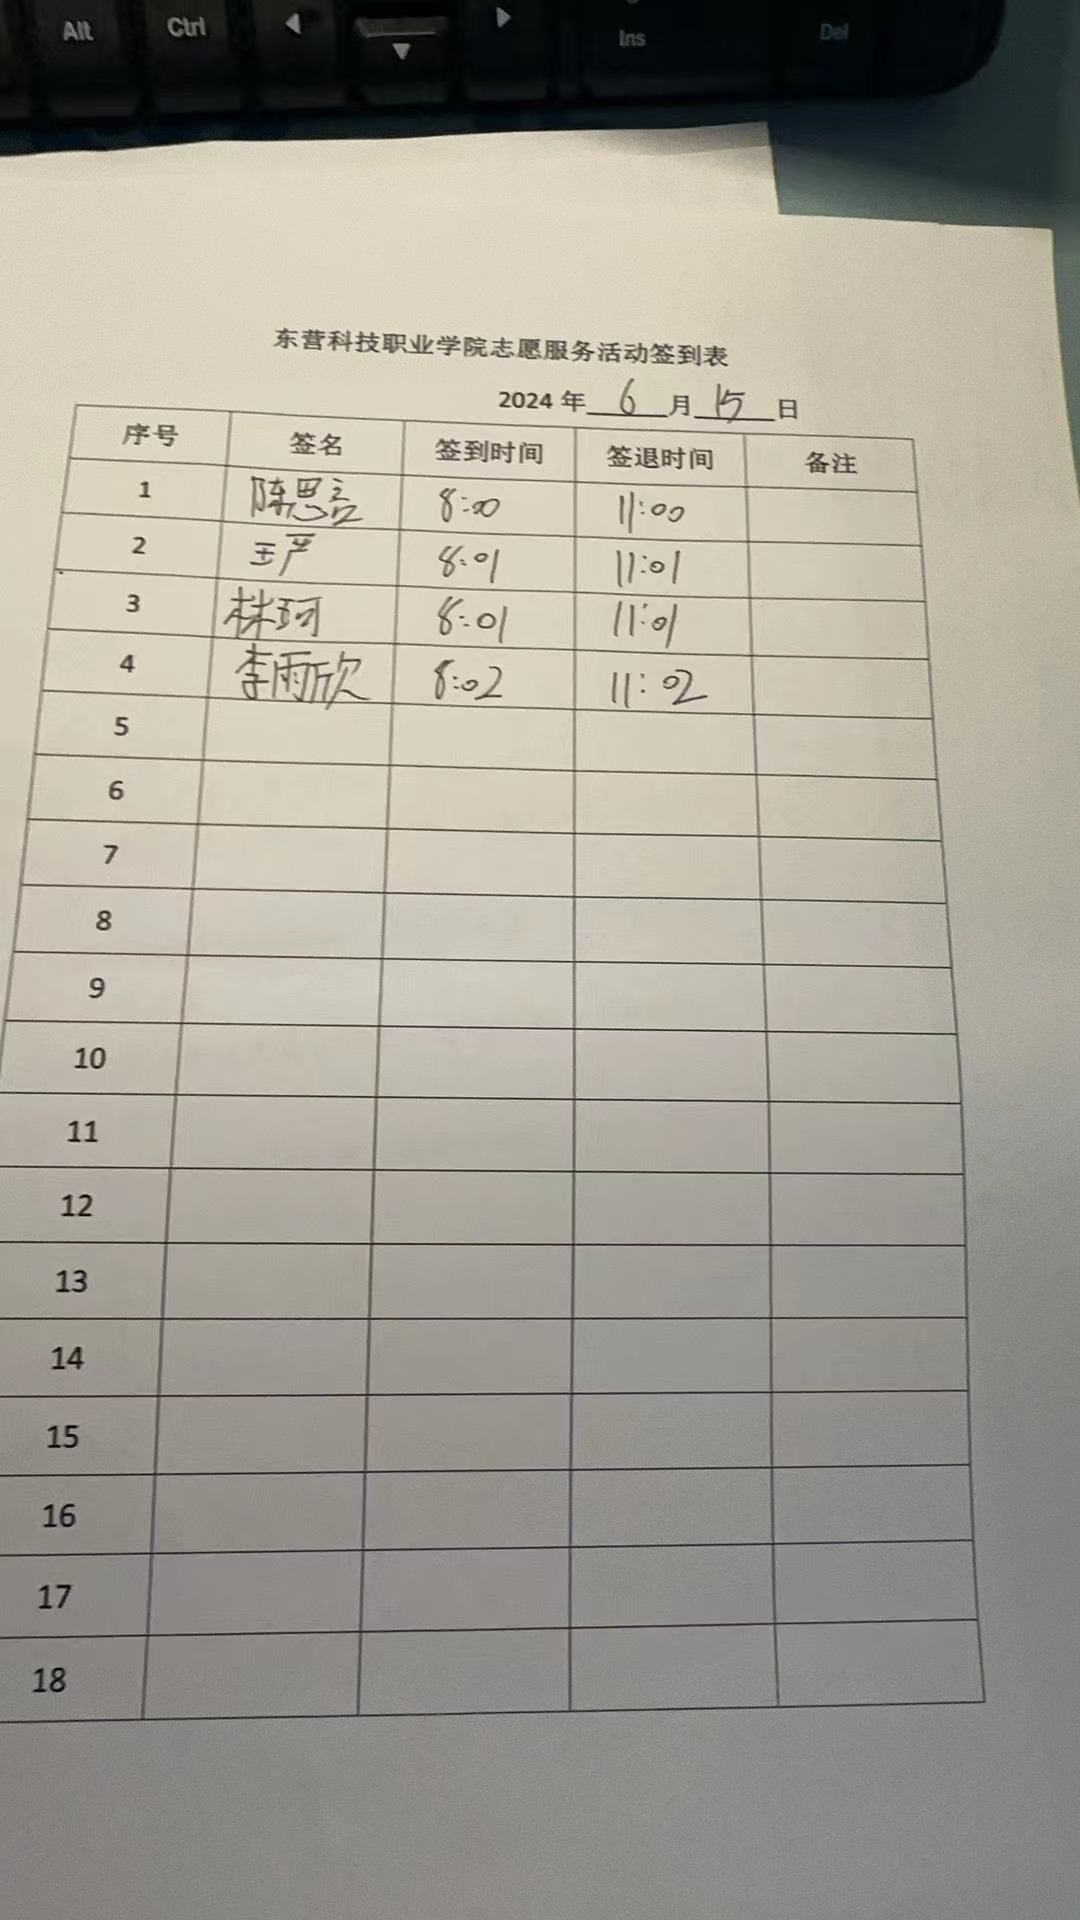 Alt Ctrl Ins Del
东营科技职业学院志愿服务活动签到表
2024 年 6 月 15 日
序号 签名 签到时间 签退时间 备注
1 陈思言 8:00 11:00
2 王严 8:01 11:01
3 林珂 8:01 11:01
4 李雨欣 8:02 11:02
5
6
7
8
9
10
11
12
13
14
15
16
17
18